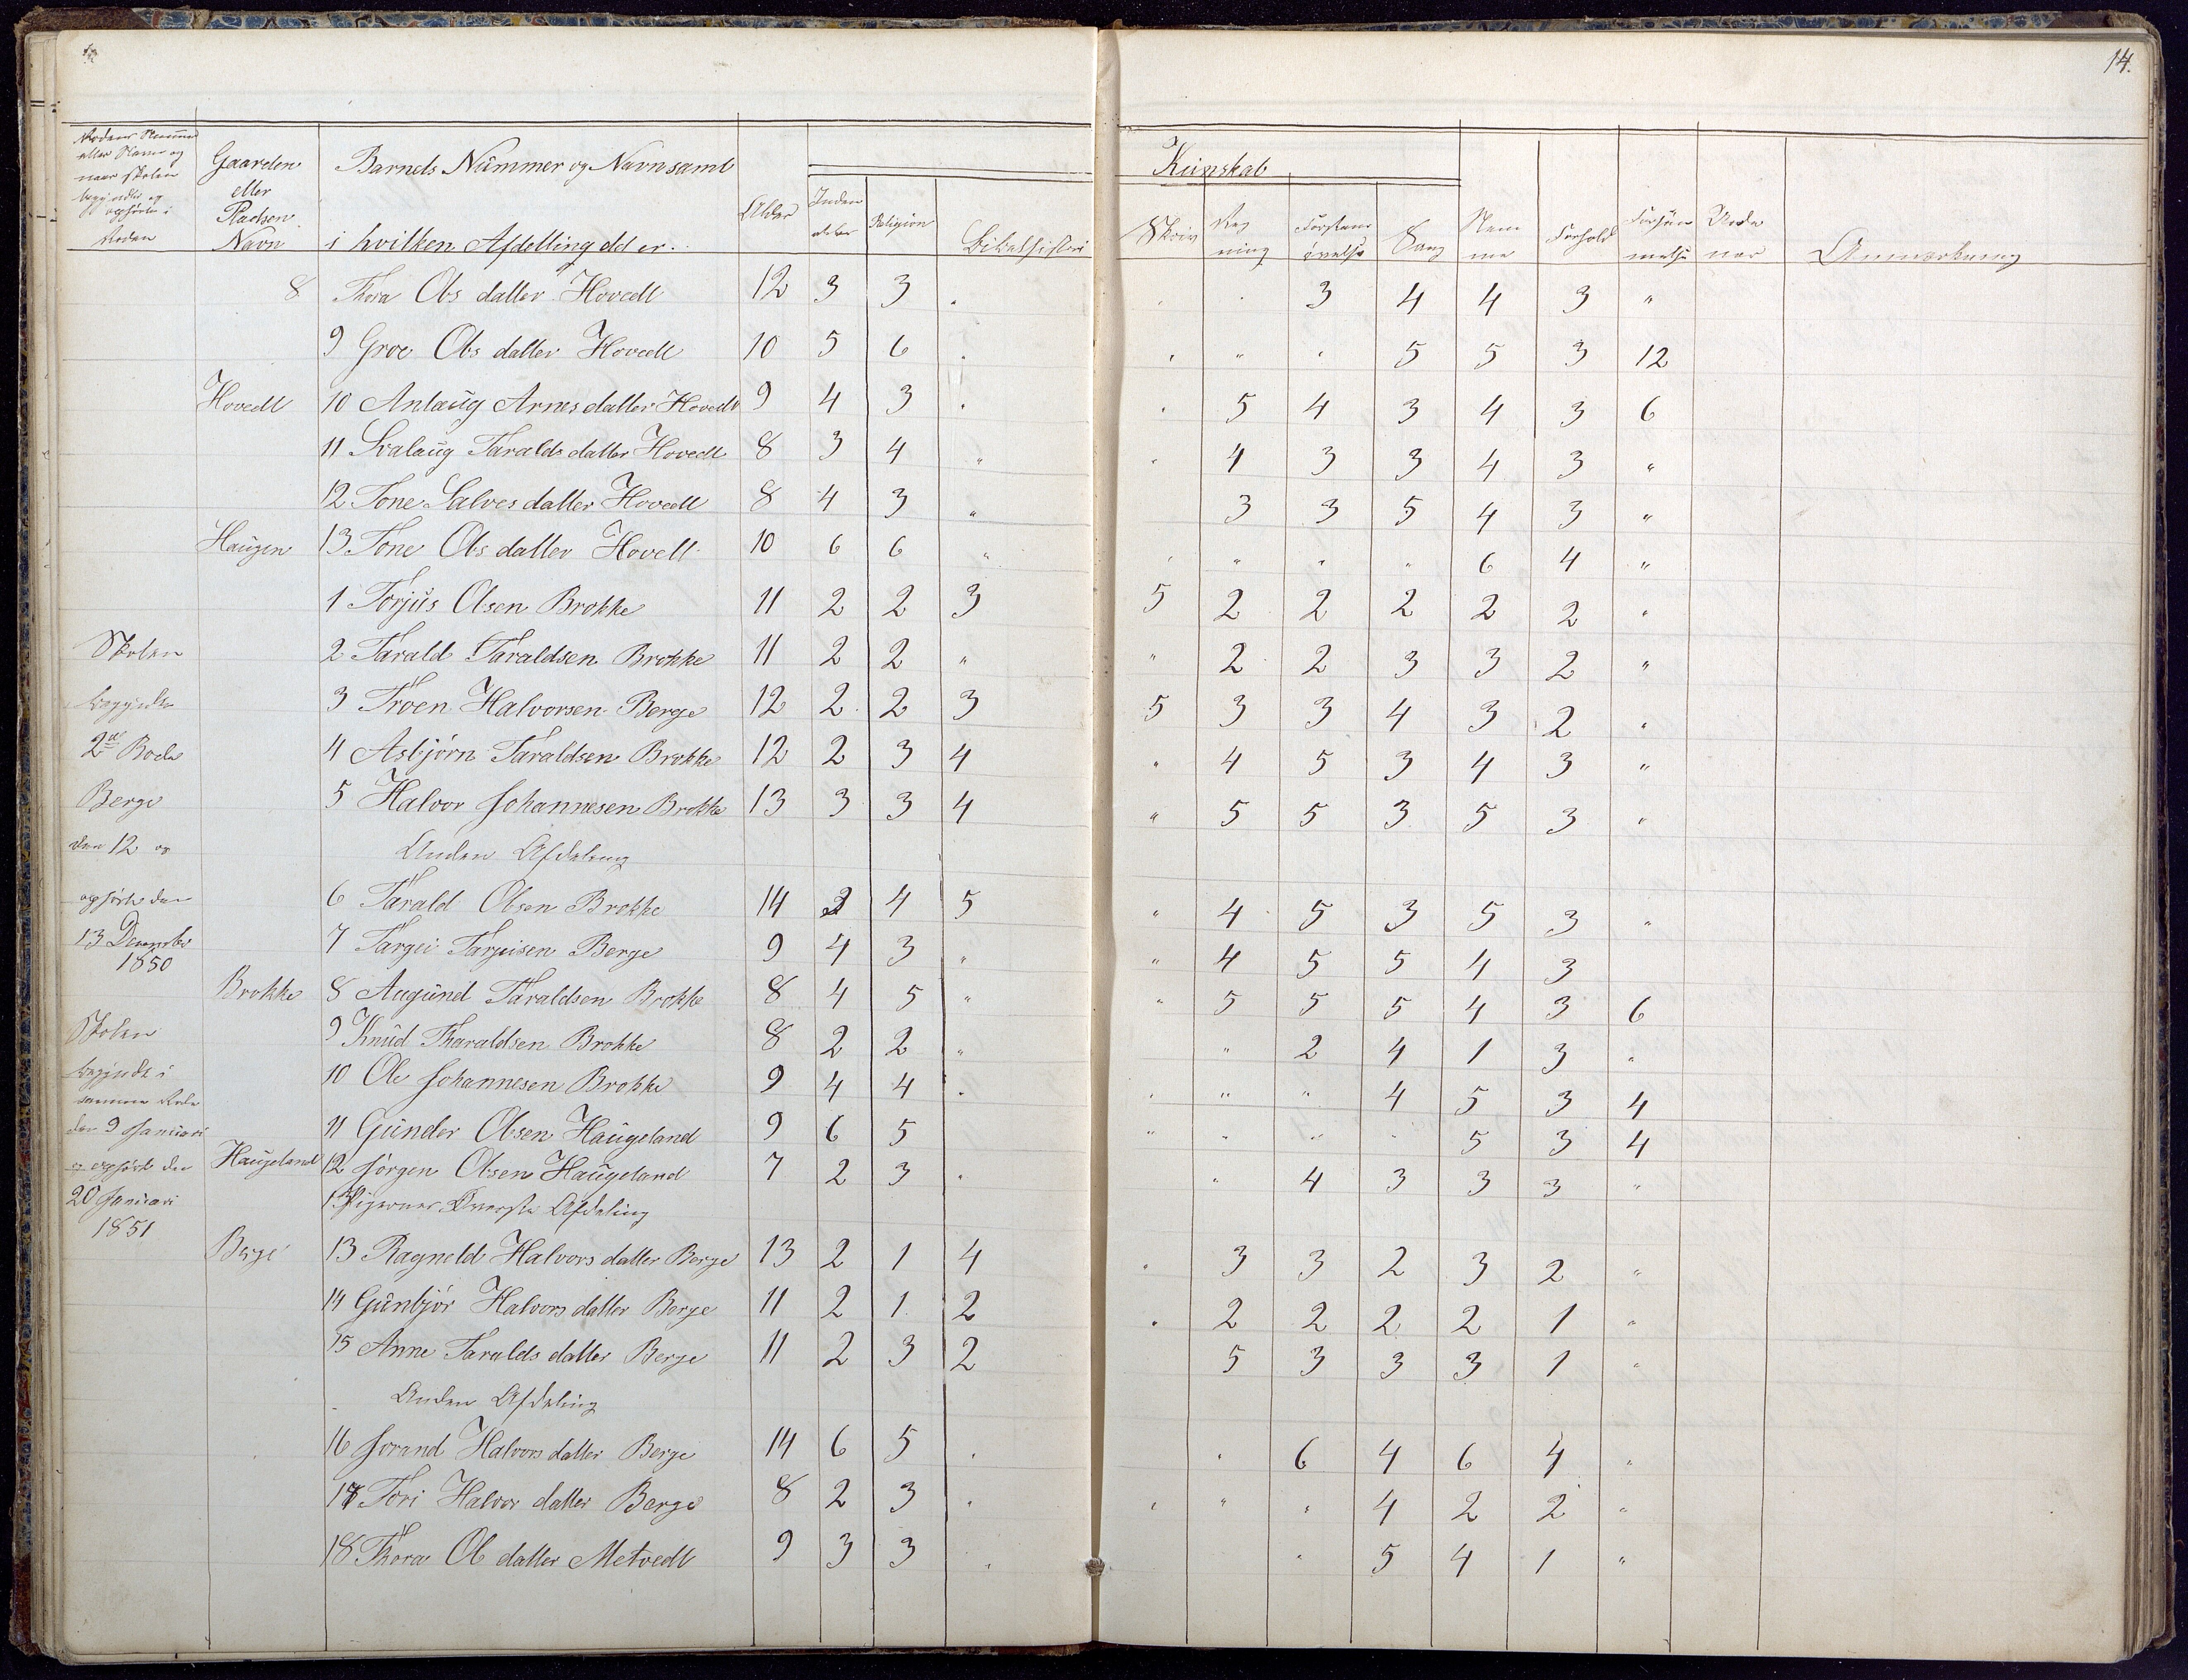 14.
Rodens Nummer
eller Navn og
naar Skolen
begyndte og
ophørte i
Roden
Gaarden
eller
Pladsen
Navn
Barnets Nummer og Navn samt
i hvilken Afdelling del er.
Alder
Inden
Religion
Bibelhistori
Kunskab
Skriv
Reg
ning
Forstands
øvelse
Sang
Nem
me
Forhold
Forsøm
melse
Anmerkning
8 Thora Ols datter Hovedt 12 3 3 " " " 3 4 4 3 "
9 Groe Ols datter Hovedt 10 5 6 " " " " 5 5 3 12
Hovedt 10 Anlaug Arnes datter Hovedt 9 4 3 " " 5 4 3 4 3 6
11 Svalaug Taralds datter Hovedt 8 3 4 " " 4 3 3 4 3 "
12 Tone Salves datter Hovedt 8 4 3 " 3 3 5 4 3 "
Haugen 13 Tone Ols datter Hovett 10 6 6 " " " " " 6 4 "
1 Torjus Olsen Brokke 11 2 2 3 5 2 2 2 2 2 "
Skolen 2 Tarald Taraldsen Brokke 11 2 2 " " 2 2 3 3 2 "
begyndte 3 Troen Halvorsen Berge 12 2 2 3 5 3 3 4 3 2 "
2den Rode 4 Asbjørn Taraldsen Brokke 12 2 3 4 " 4 5 3 4 3 "
Berge 5 Halvor Johannesen Brokke 13 3 3 4 " 5 5 3 5 3 "
den 12 og Anden Afdeling
ophørte den 6 Tarald Olsen Brokke 14 3 4 5 " 4 5 3 5 3 "
13 December 7 Targei Tarjeisen Berge 9 4 3 " " 4 5 5 4 3
1850
Brokke 8 Augund Taraldsen Brokke 8 4 5 " " 5 5 5 4 3 6
Skolen 9 Knud Tharaldsen Brokke 8 2 2 " " 2 4 1 3 "
begyndte i 10 Ole Johannesen Brokke 9 4 4 " " " " 4 5 3 4
samme Rode
den 9 Januari 11 Gunder Olsen Haugeland 9 6 5 " " " " 5 3 4
og ophørte den Haugeland 12 Jørgen Olsen Haugeland 7 2 3 " " 4 3 3 3 "
20 Januari Pigernes Øverste Afdeling
1851
Berge 13 Ragneld Halvors datter Berge 13 2 1 4 " 3 3 2 3 2 "
14 Gunbjør Halvors datter Berge 11 2 1 2 " 2 2 2 2 1 "
15 Anne Taralds datter Berge 11 2 3 2 5 3 3 3 1 "
Anden Afdeling
16 Jorand Halvors datter Berge 14 6 5 " " 6 4 6 4 "
17 Tori Halvor datter Berge 8 2 3 " " " " 4 2 2 "
18 Thora Ol datter Metvedt 9 3 3 " " 5 4 1 "